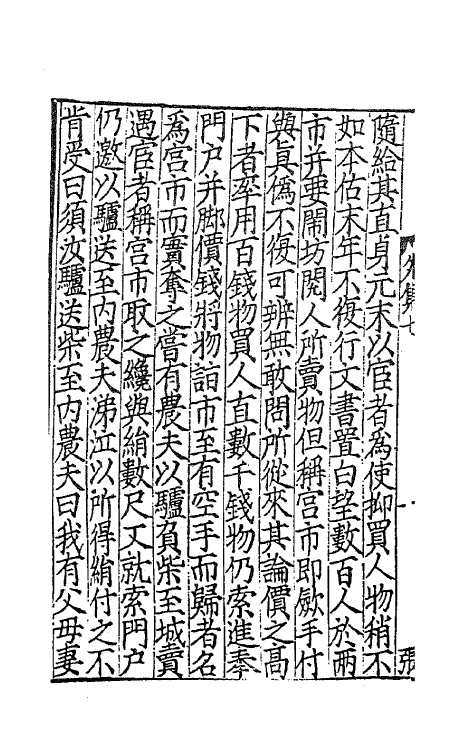 隨給其直貞元末以宦者爲使抑買人物稍不
如本估末年不復行文書置白望數百人於兩
市并要閙坊閱人所賣物但稱宮市即歛手付
與真僞不復可辨無敢問所從來其論價之高
下者率用百錢物買人直數千錢物仍索進奉
門户并脚價錢將物詣市至有空手而歸者名
爲宮市而實奪之嘗有農夫以驢負柴至城賣
遇宦者稱宮市取之纔與絹數尺又就索門户
仍邀以驢送至内農夫涕泣以所得絹付之不
肯受曰須汝驢送柴至内農夫曰我有父母妻